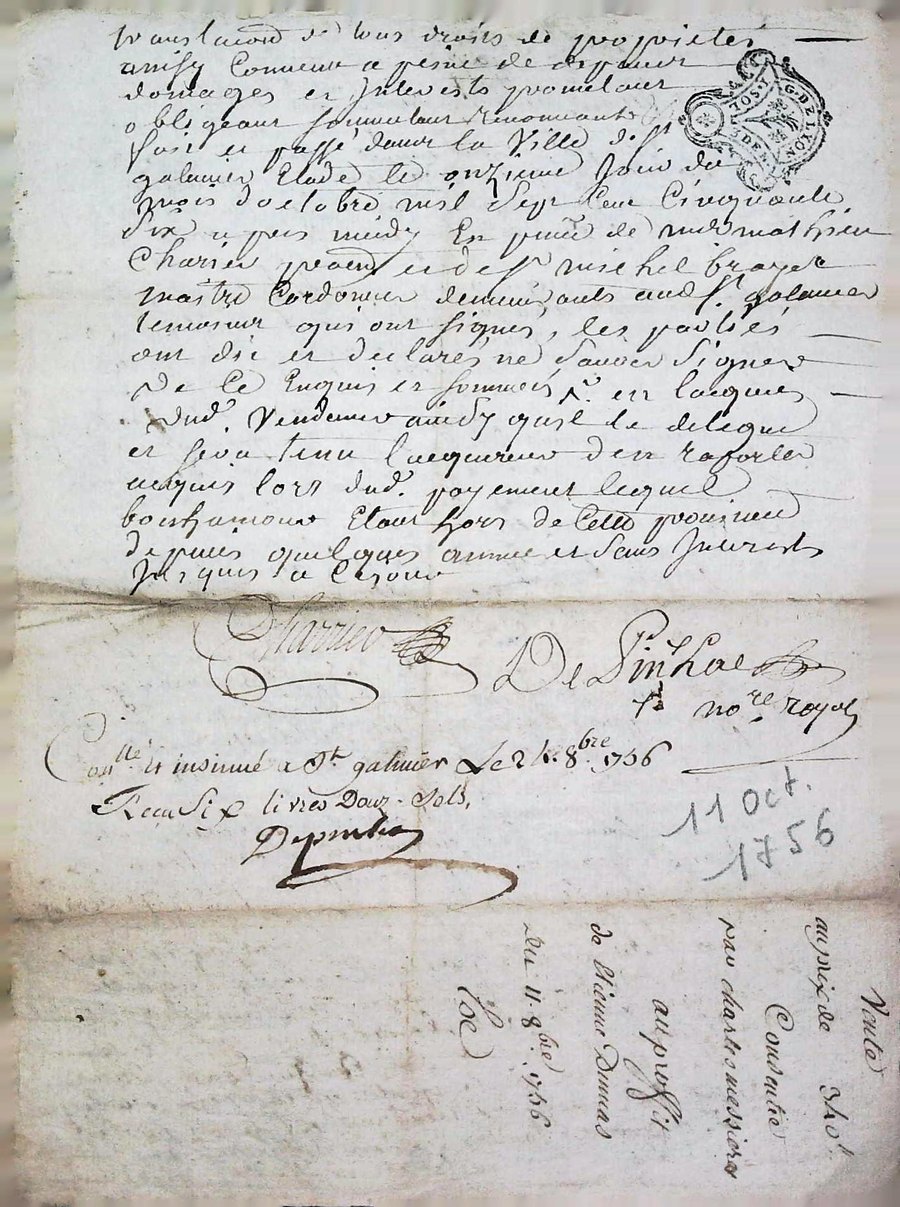 translation de tous droits de proprietés
ainsy Convenu a peine de depens
domages et Interests promettant
obligeant soumettant Renonceants
fait et passé dans la Ville de St
galmier Etude le onzieme Jour du
mois d'octobre mil Sept Cent Cinquante
Six apres midy En pnce de mre mathieu
Charier et de sr michel broyer
maitre Cordonier demeurants aud. St. galmier
temoins qui ont signés, les parties
ont dit et declarés ne Savoir Signer
de Ce Enquis et sommés
dud. Vendeur ainsy quil le delegue
et sera tenu lacquereur den raporter
acquis lors dud. payement lequel
bonhamour Etant hors de Cette province
depuis quelques année et Sans Interests
Jusques a Ce jour
G. DE LYON
1. SOL
DEN
Charrier
DePinhac
nore. royal
Conllé et insinué a St galmier Le 8bre. 1756
Recu Six livres Douz. Sols,
11 Oct.
1756
Vente
au prix de 340l
Consentie
par charles messier
au proffit
de Etienne Dumas
du 11 8bre 1756